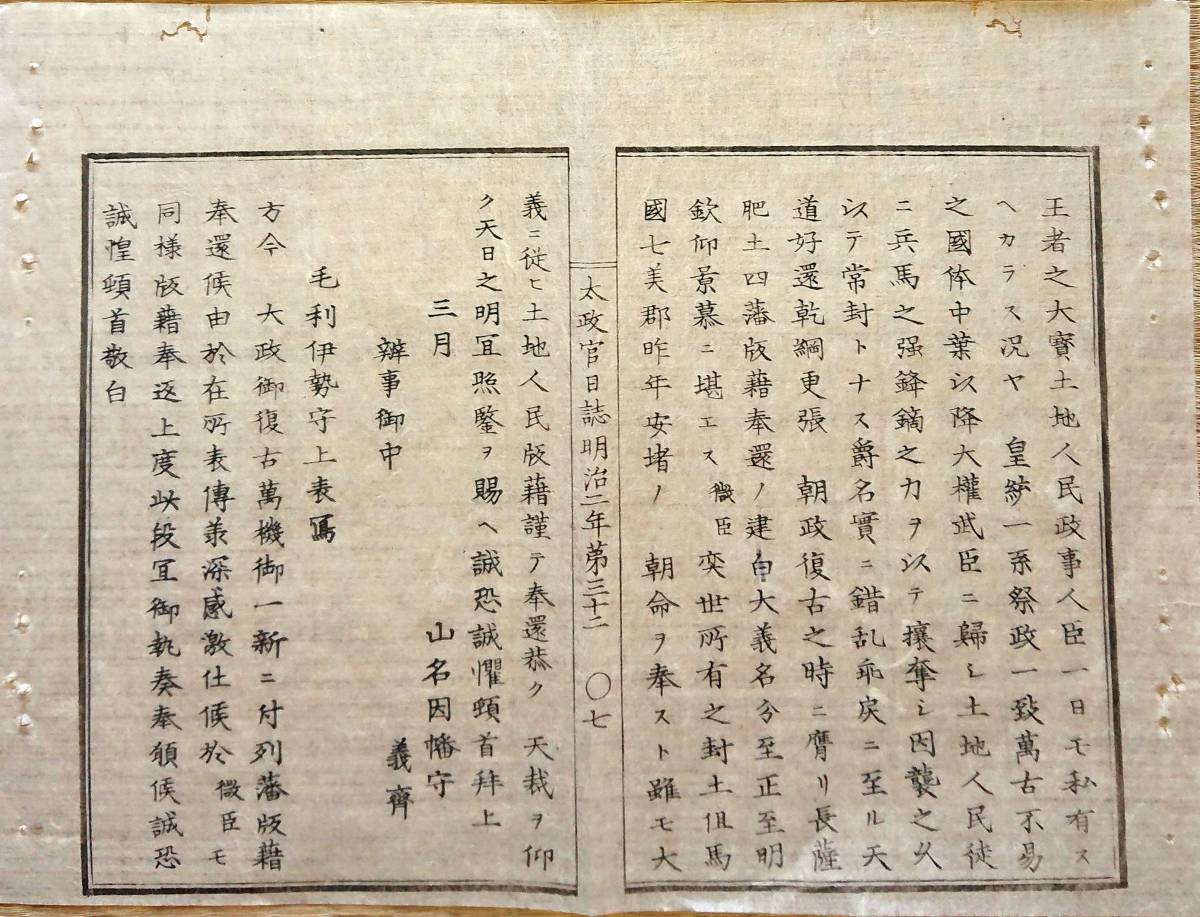 王者之大寶土地人民政事人臣一日モ私有ス
ヘカラス況ヤ 皇統一系祭政一致萬古不易
之國体中葉以降大權武臣ニ歸シ土地人民徒
ニ兵馬之强鋒鏑之力ヲ以テ攘奪シ因襲之久
以テ常封トナス爵名實ニ錯乱乖戻ニ至ル天
道好還乾綱更張 朝政復古之時ニ膺リ長薩
肥土四藩版藉奉還ノ建白大義名分至正至明
欽仰景慕ニ堪エス 微臣 奕世所有之封土但馬
國七美郡昨年安堵ノ 朝命ヲ奉スト雖モ大
太政官日誌明治二年第三十二 〇七
義ニ従ヒ土地人民版藉謹テ奉還恭ク 天裁ヲ仰
ク天日之明冝照鑒ヲ賜ヘ誠恐誠懼頓首拜上
三月 山名因幡守
義齊
辨事御中
毛利伊勢守上表寫
方今 大政御復古萬機御一新ニ付列藩版藉
奉還候由於在所表傳承深感激仕候於 微臣モ
同様版藉奉返上度此段冝御執奏奉願候誠恐
誠惶頓首敬白